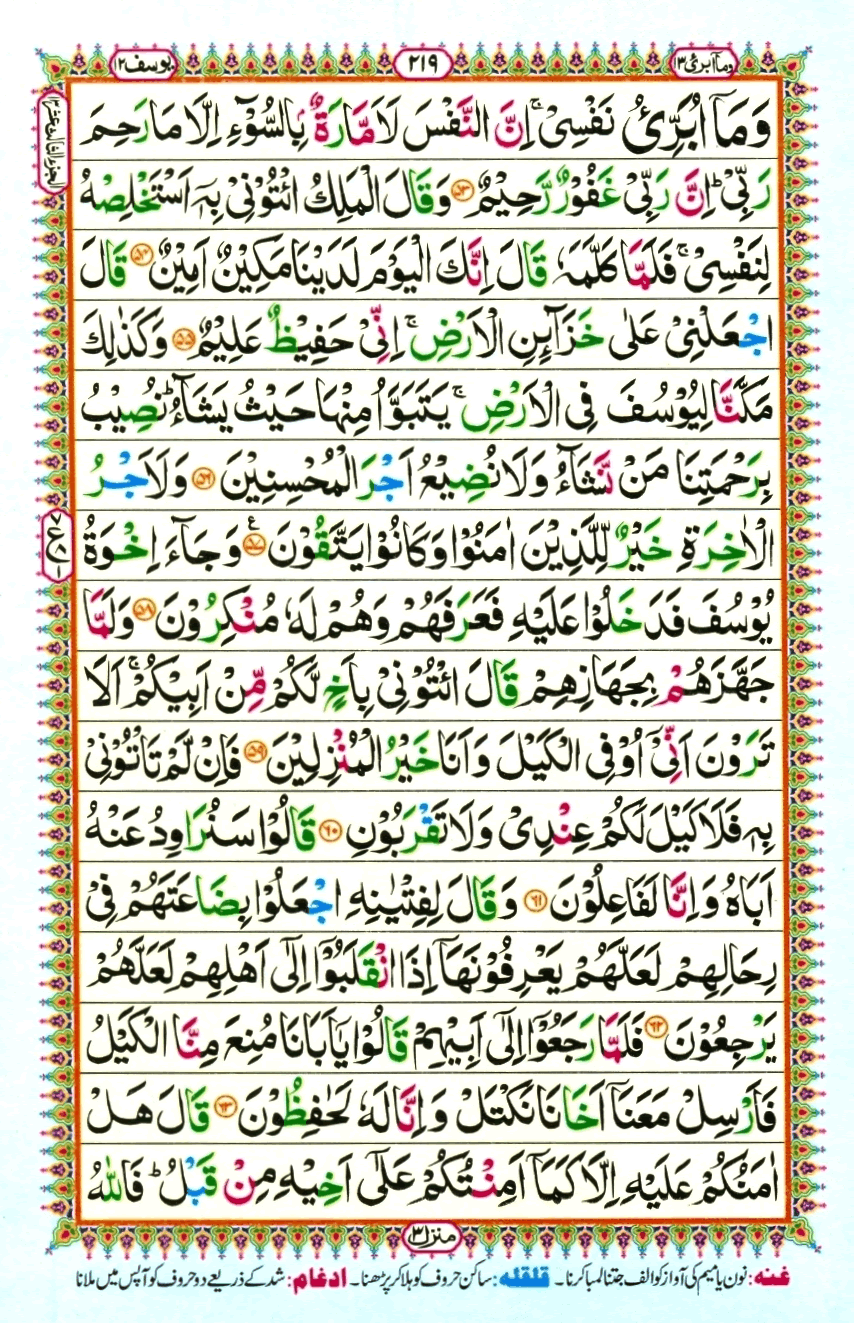 وماۤابرئ ١٣
٢١٩
یوسف ١٢
الجزء الثالث عشر ١٣
وَمَاۤ اُبَرِّئُ نَفْسِیْ ۚ اِنَّ النَّفْسَ لَاَمَّارَةٌۢ بِالسُّوْٓءِ اِلَّا مَا رَحِمَ
رَبِّیْ ؕ اِنَّ رَبِّیْ غَفُوْرٌ رَّحِیْمٌ ﴿۵۳﴾ وَقَالَ الْمَلِكُ ائْتُوْنِیْ بِهٖۤ اَسْتَخْلِصْهُ
لِنَفْسِیْ ۚ فَلَمَّا كَلَّمَهٗ قَالَ اِنَّكَ الْیَوْمَ لَدَیْنَا مَكِیْنٌ اَمِیْنٌ ﴿۵۴﴾ قَالَ
اجْعَلْنِیْ عَلٰی خَزَآئِنِ الْاَرْضِ ۚ اِنِّیْ حَفِیْظٌ عَلِیْمٌ ﴿۵۵﴾ وَكَذٰلِكَ
مَكَّنَّا لِیُوْسُفَ فِی الْاَرْضِ ۚ یَتَبَوَّاُ مِنْهَا حَیْثُ یَشَآءُ ؕ نُصِیْبُ
بِرَحْمَتِنَا مَنْ نَّشَآءُ وَلَا نُضِیْعُ اَجْرَ الْمُحْسِنِیْنَ ﴿۵۶﴾ وَلَاَجْرُ
الْاٰخِرَةِ خَیْرٌ لِّلَّذِیْنَ اٰمَنُوْا وَكَانُوْا یَتَّقُوْنَ ﴿۵۷﴾ ع وَجَآءَ اِخْوَةُ
یُوْسُفَ فَدَخَلُوْا عَلَیْهِ فَعَرَفَهُمْ وَهُمْ لَهٗ مُنْكِرُوْنَ ﴿۵۸﴾ وَلَمَّا
جَهَّزَهُمْ بِجَهَازِهِمْ قَالَ ائْتُوْنِیْ بِاَخٍ لَّكُمْ مِّنْ اَبِیْكُمْ ۚ اَلَا
تَرَوْنَ اَنِّیْۤ اُوْفِی الْكَیْلَ وَاَنَا خَیْرُ الْمُنْزِلِیْنَ ﴿۵۹﴾ فَاِنْ لَّمْ تَاْتُوْنِیْ
بِهٖ فَلَا كَیْلَ لَكُمْ عِنْدِیْ وَلَا تَقْرَبُوْنِ ﴿۶۰﴾ قَالُوْا سَنُرَاوِدُ عَنْهُ
اَبَاهُ وَاِنَّا لَفَاعِلُوْنَ ﴿۶۱﴾ وَقَالَ لِفِتْیٰنِهِ اجْعَلُوْا بِضَاعَتَهُمْ فِیْ
رِحَالِهِمْ لَعَلَّهُمْ یَعْرِفُوْنَهَاۤ اِذَا انْقَلَبُوْۤا اِلٰۤی اَهْلِهِمْ لَعَلَّهُمْ
یَرْجِعُوْنَ ﴿۶۲﴾ فَلَمَّا رَجَعُوْۤا اِلٰۤی اَبِیْهِمْ قَالُوْا یٰۤاَبَانَا مُنِعَ مِنَّا الْكَیْلُ
فَاَرْسِلْ مَعَنَاۤ اَخَانَا نَكْتَلْ وَاِنَّا لَهٗ لَحٰفِظُوْنَ ﴿۶۳﴾ قَالَ هَلْ
اٰمَنُكُمْ عَلَیْهِ اِلَّا كَمَاۤ اَمِنْتُكُمْ عَلٰۤی اَخِیْهِ مِنْ قَبْلُ ؕ فَاللّٰهُ
منزل ٣
غنه: نون یا میم کی آواز کو الف جتنا لمبا کرنا۔ قلقله: ساکن حروف کو ہلا کر پڑھنا۔ ادغام: شد کے ذریعے دو حروف کو آپس میں ملانا